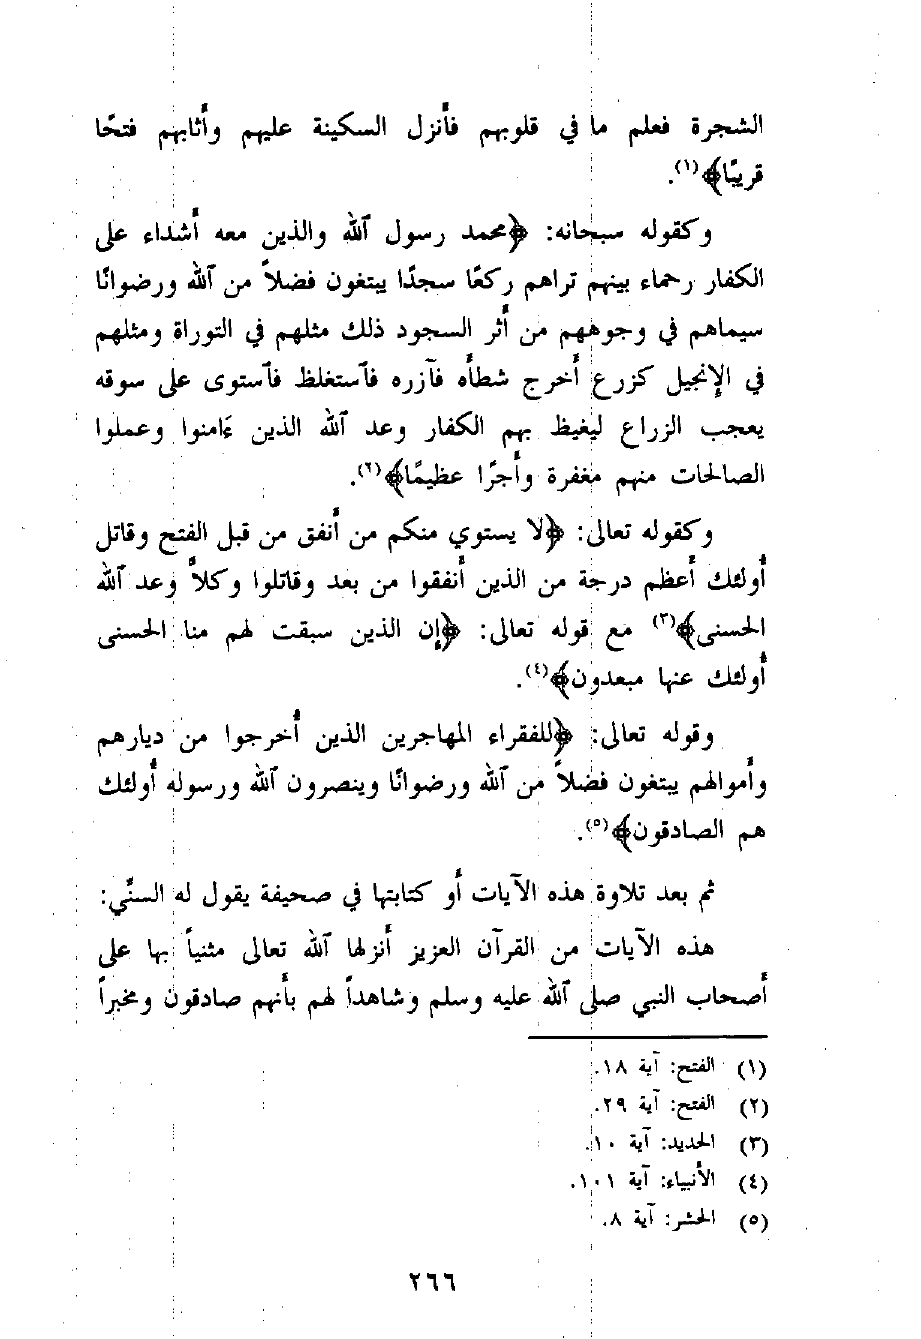 الشجرة فعلم ما في قلوبهم فأنزل السكينة عليهم وأثابهم فتحًا
قريبًا﴾(١).
وكقوله سبحانه: ﴿محمد رسول ٱلله والذين معه أشداء على
الكفار رحماء بينهم تراهم ركعًا سجدًا يبتغون فضلاً من ٱلله ورضوانًا
سيماهم في وجوههم من أثر السجود ذلك مثلهم في التوراة ومثلهم
في الإنجيل كزرع أخرج شطأه فآزره فٱستغلظ فٱستوى على سوقه
يعجب الزراع ليغيظ بهم الكفار وعد ٱلله الذين ءَامنوا وعملوا
الصالحات منهم مغفرة وأجرًا عظيمًا﴾(٢).
وكقوله تعالى: ﴿لا يستوي منكم من أنفق من قبل الفتح وقاتل
أولئك أعظم درجة من الذين أنفقوا من بعد وقاتلوا وكلاًّ وعد ٱلله
الحسنى﴾(٣) مع قوله تعالى: ﴿إن الذين سبقت لهم منا الحسنى
أولئك عنها مبعدون﴾(٤).
وقوله تعالى: ﴿للفقراء المهاجرين الذين أخرجوا من ديارهم
وأموالهم يبتغون فضلاً من ٱلله ورضوانًا وينصرون ٱلله ورسوله أولئك
هم الصادقون﴾(٥).
ثم بعد تلاوة هذه الآيات أو كتابتها في صحيفة يقول له السنّي:
هذه الآيات من القرآن العزيز أنزلها ٱلله تعالى مثنياً بها على
أصحاب النبي صلى ٱلله عليه وسلم وشاهداً لهم بأنهم صادقون ومخبراً
(١) الفتح: آية ١٨.
(٢) الفتح: آية ٢٩.
(٣) الحديد: آية ١٠.
(٤) الأنبياء: آية ١٠١.
(٥) الحشر: آية ٨.
٢٦٦